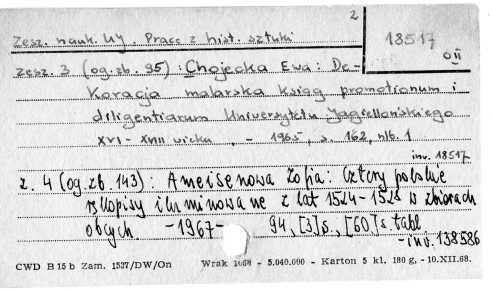 2
Zesz. nauk. UJ. Prace z hist. sztuki
18517
O II
zesz. 3 (og. zb. 95) : Chojecka Ewa : De-
koracja malarska ksiąg promotionum i
diligentiarum Uniwersytetu Jagiellońskiego
XVI - XVII wieku, - 1965, s. 162, nlb. 1
inv. 18517
z. 4 (og. zb. 143) : Ameisenowa Zofia : Cztery polskie
rękopisy iluminowane z lat 1524-1528 w zbiorach
obcych. - 1967 - 94, [3] s., [60] s. tabl.
- inv. 138586
CWD B 15 b Zam. 1537/DW/On Wrak 1068 - 5.040.000 - Karton 5 kl. 180 g. - 10.XII.68.